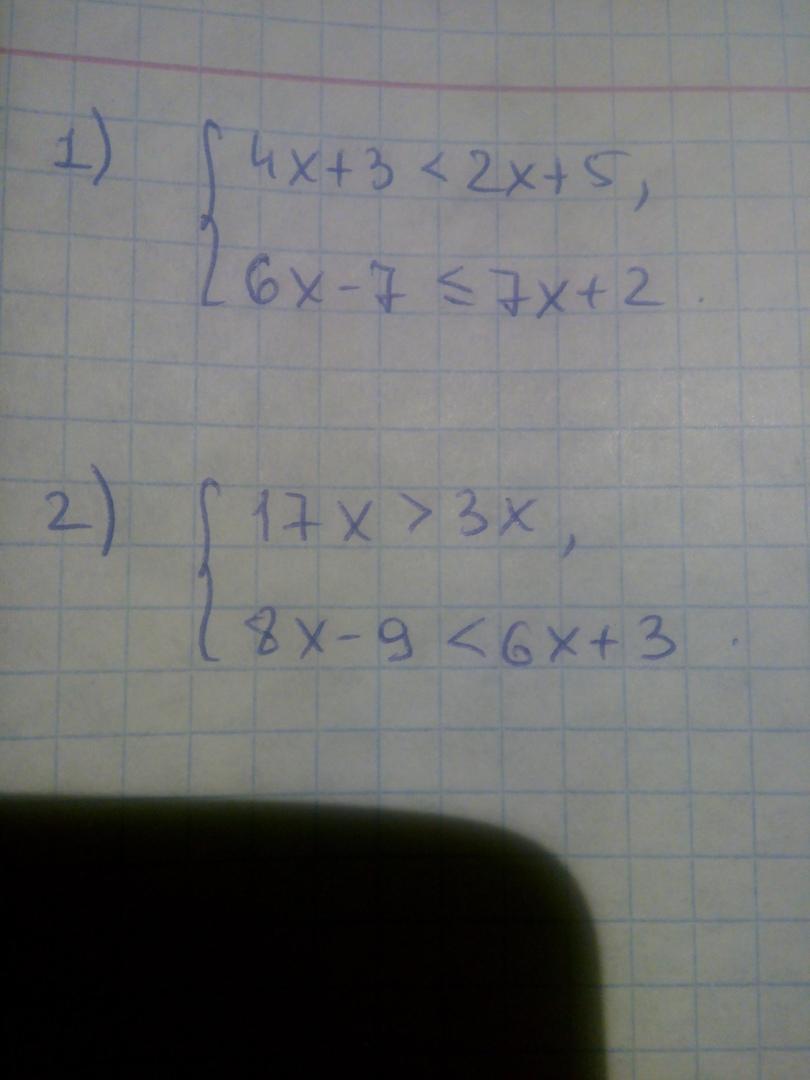 1) { 4x+3 < 2x+5,
6x-7 ≤ 7x+2 .
2) { 17x > 3x,
8x-9 < 6x+3 .